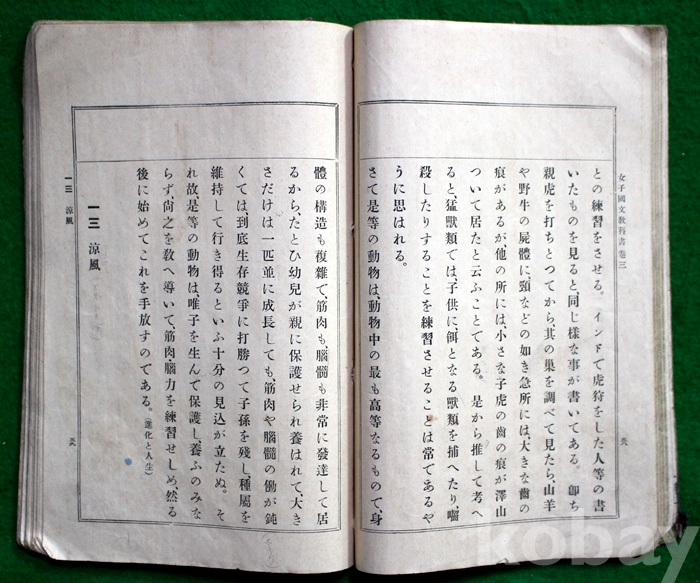 女子國文敎科書 卷三
との練習をさせる。インドで虎狩をした人等の書
いたものを見ると、同じ樣な事が書いてある。卽ち
親虎を打ちとつてから、其の巢を調べて見たら、山羊
や野牛の屍體に、頸などの如き急所には、大きな齒の
痕があるが、他の所には、小さな子虎の齒の痕が澤山
ついて居たと云ふことである。是から推して考へ
ると、猛獸類では子供に、餌となる獸類を捕へたり、嚙
殺したりすることを練習させることは常であるや
うに思はれる。
さて是等の動物は、動物中の最も高等なるもので、身
體の構造も複雜で、筋肉も、腦髓も非常に發達して居
るから、たとひ幼兒が親に保護せられ養はれて、大き
さだけは一匹並に成長しても、筋肉や腦髓の働が鈍
くては、到底生存競爭に打勝つて子孫を殘し、種屬を
維持して行き得るといふ十分の見込が立たぬ。そ
れ故、是等の動物は、唯子を生んで保護し、養ふのみな
らず、尙之を敎へ導いて、筋肉・腦力を練習せしめ、然る
後に始めてこれを手放すのである。(進化と人生)
一三 涼風
一三 涼風
kobay